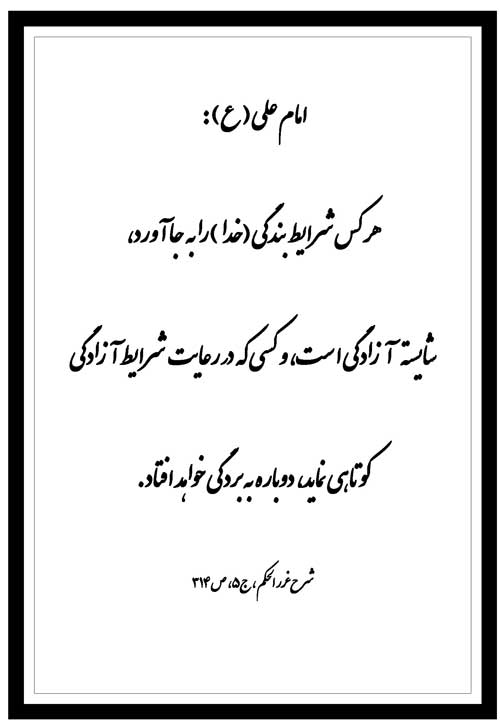 امام علی (ع):
هر کس شرایط بندگی (خدا) را به جا آورد،
شایستهٔ آزادگی است، و کسی که در رعایت شرایط آزادگی
کوتاهی نماید، دوباره به بردگی خواهد افتاد.
شرح غرر الحکم، ج۵، ص۳۱۴